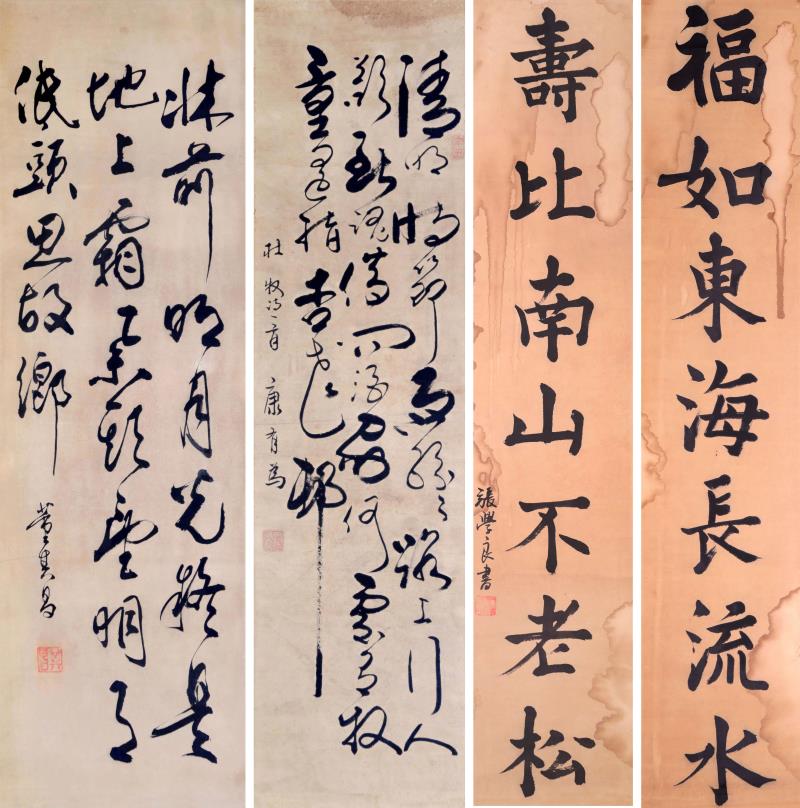 福如東海長流水
壽比南山不老松
張學良書
清明時節雨紛〻路上行人
欲斷魂借問酒家何處有牧
童遙指杏花邨
杜牧詩一首 康有為
牀前明月光疑是
地上霜舉頭望明月
低頭思故鄉
董其昌